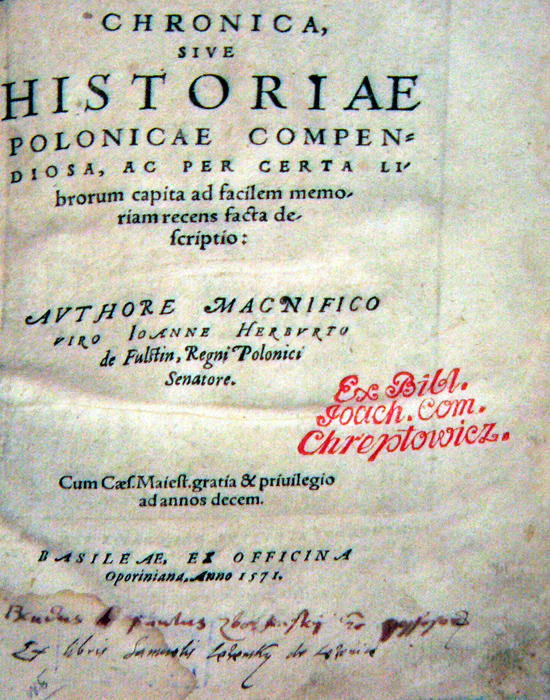 CHRONICA,
SIVE
HISTORIAE
POLONICAE COMPEN=
DIOSA, AC PER CERTA LI-
brorum capita ad facilem memo-
riam recens facta de-
scriptio:
AVTHORE MAGNIFICO
VIRO IOANNE HERBVRTO
de Fulstin, Regni Polonici
Senatore.
Ex Bibl.
Joach. Com.
Chreptowicz.
Cum Cæs. Maiest. gratia & priuilegio
ad annos decem.
BASILEAE, EX OFFICINA
Oporiniana, Anno 1571.
Ex libris de